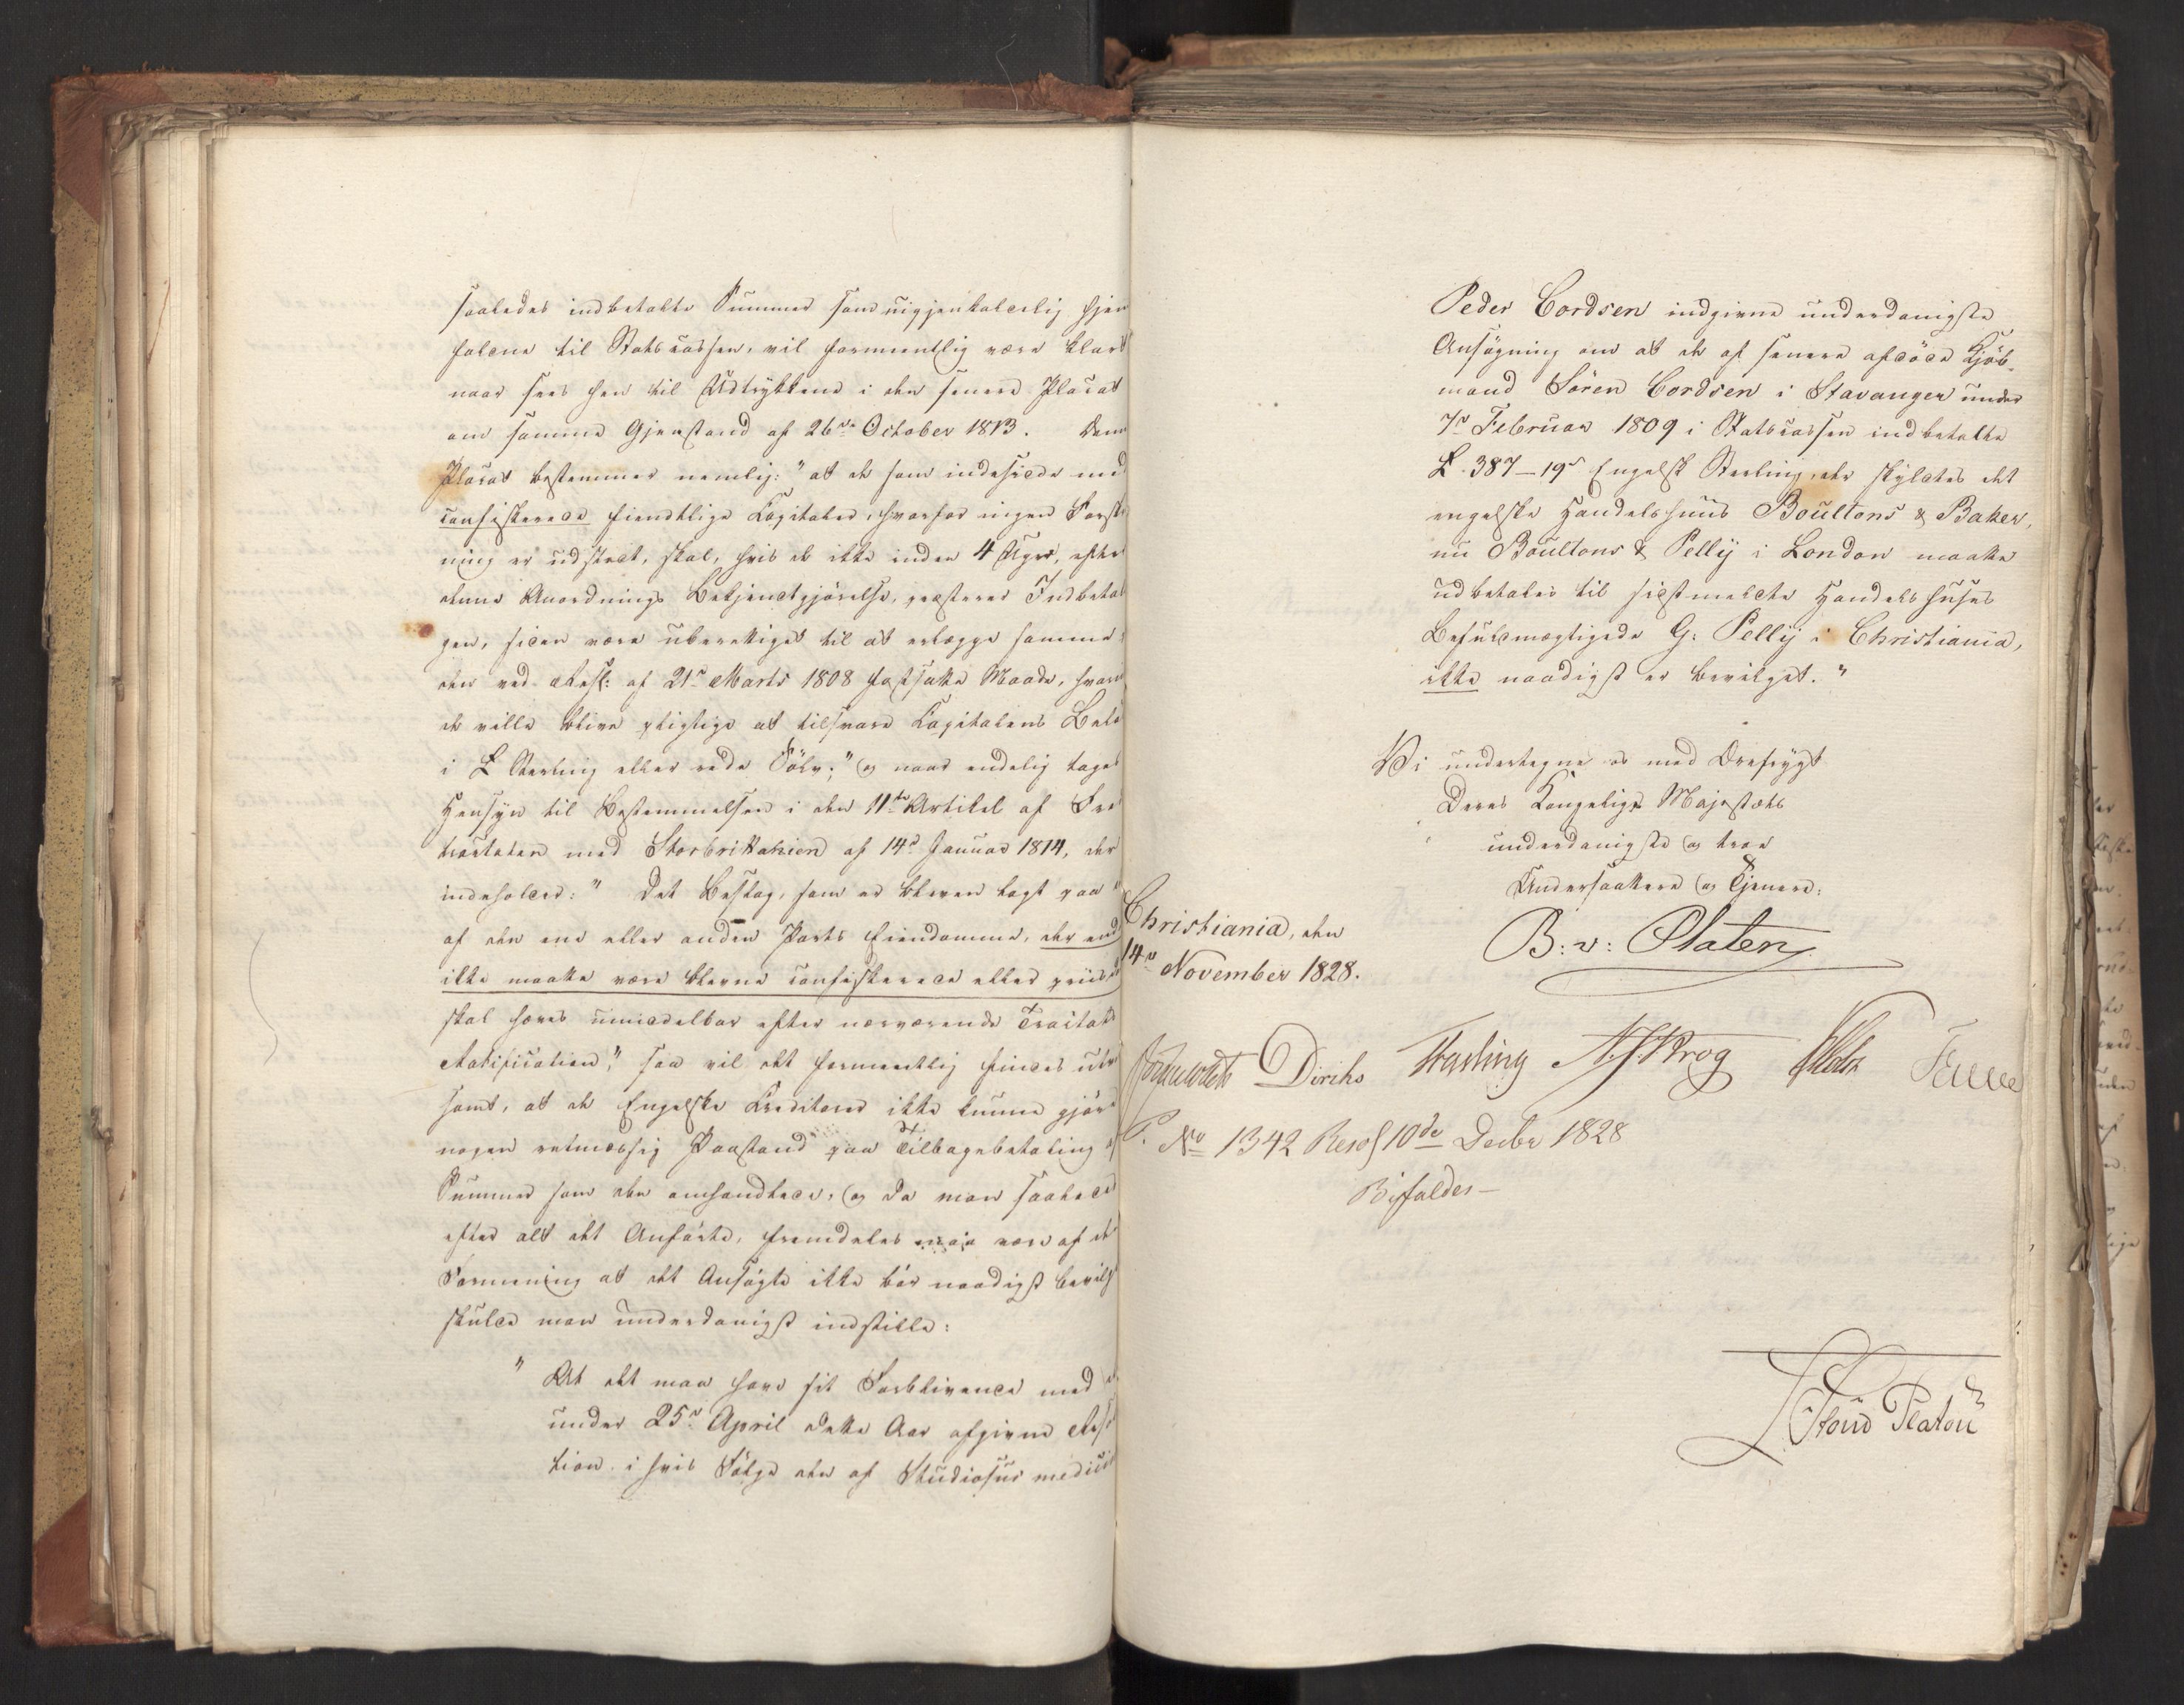 saaledes indbetalte Summer som uigjenkaldelig hjem
faldne til Statscassen, vil formeentlig være klart
naar sees hen til Udtrykkene i den senere Placat
om samme Gjenstand af 26de October 1813. Denne
Placat bestemmer nemlig: "at de som indestode med
confiskerede fiendtlige Capitaler, hvorfor ingen Forskriv
ning er udstedt, skal, hvis de ikke inden 4 Uger, efter
denne Anordnings Bekjendtgjörelse, præsterer Indbetalin
gen, siden være uberettiget til at erlægge samme
den ved Resl: af 21de Marts 1808 fastsatte Maade, hvorved
de ville blive pligtige at tilsvare Capitalens Belöb
i £ Sterling eller rede Sölv;" og naar endelig tages
Hensyn til Bestemmelsen i den 11te Artikel af Freds
tractaten med Storbrittanien af 14de Januar 1814, der
indeholder: "Det Beslag, som er bleven lagt paa
af den ene eller anden Parts Eiendomme, der end
ikke maatte være blevne confiskerede eller priisdömte
skal hæves umiddelbar efter nærværende Tractats
Ratification", saa vil det formeentlig findes utvivl
somt, at de Engelske Creditorer ikke kunne gjöre
nogen retmæssig Paastand paa Tilbagebetaling af
Summer som den omhandlede, og da man saaledes
efter alt det Anförte, fremdeles maa være af den
Formening at det Ansögte ikke bör naadigst bevilges
skulde man underdanigst indstille:
"At det maa have sit Forblivende med den
under 25de April dette Aar afgivne Resolu
tion i hvis Fölge den af Studiosus medicinæ
Peder Cordsen indgivne underdanigste
Ansögning om at de af senere afdöde Kjöb-
mand Sören Cordsen i Stavanger under
7de Februar 1809 i Statscassen indbetalte
£ 387-19s Engelsk Sterling, der skyldtes det
engelske Handelshuus Boultons & Baker,
nu Boultons & Pelly i London maatte
udbetales til sidstmeldte Handelshuses
Befuldmægtigede G: Pelly i Christiania,
ikke naadigst er bevilget."
Vi undertegne os med Ærefrygt
Deres Kongelige Majestæts
underdanigste og troe
Undersaattere og Tjenere:
Christiania, den
14de November 1828.
B: v: Platen
Diriks Fasting A. J. Krog
P. No 1342 Resol 10de Decbr 1828
Bifaldes-